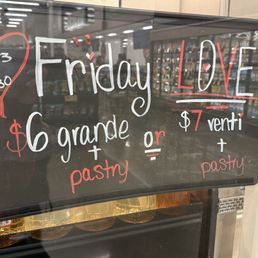 3
30
Friday LOVE
$6 grande or $7 venti
+ +
pastry pastry